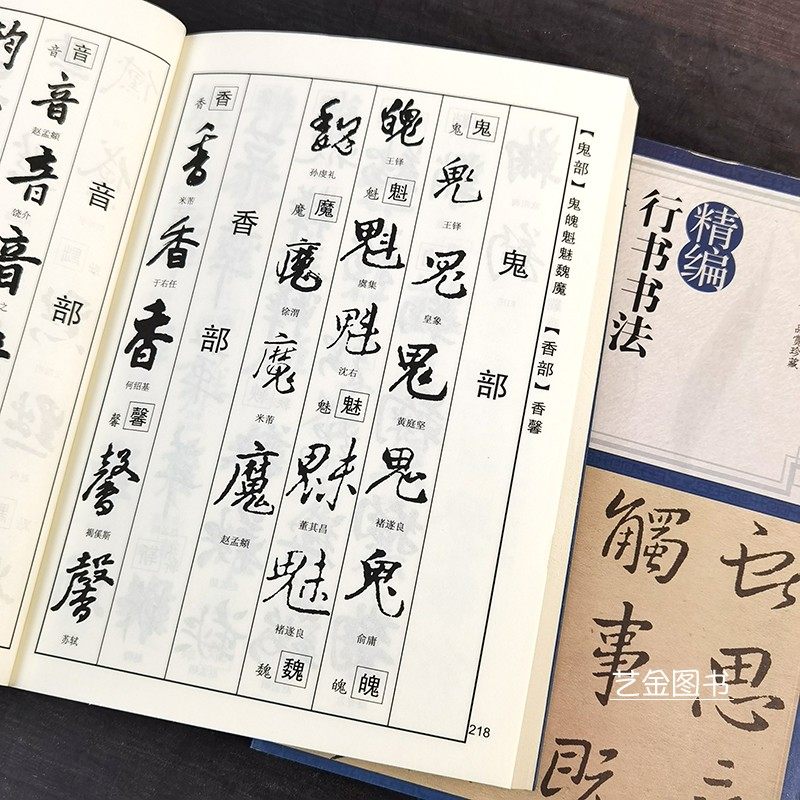 【鬼部】鬼魄魁魅魏魔 【香部】香馨
鬼部
鬼 鬼
鬼
王铎
鬼
皇象
鬼
黄庭坚
鬼
褚遂良
鬼
俞庸
魄 魄
魄
王铎
魁 魁
魁
虞集
魁
沈右
魅 魅
魅
董其昌
魅
褚遂良
魏 魏
魏
孙虔礼
魔 魔
魔
徐渭
魔
米芾
魔
赵孟頫
香部
香 香
香
米芾
香
于右任
香
何绍基
馨 馨
馨
揭傒斯
馨
苏轼
218
音部
音 音
音
赵孟頫
音
饶介
音
之
精编
行书书法
珍藏
思
觸事既
艺金图书